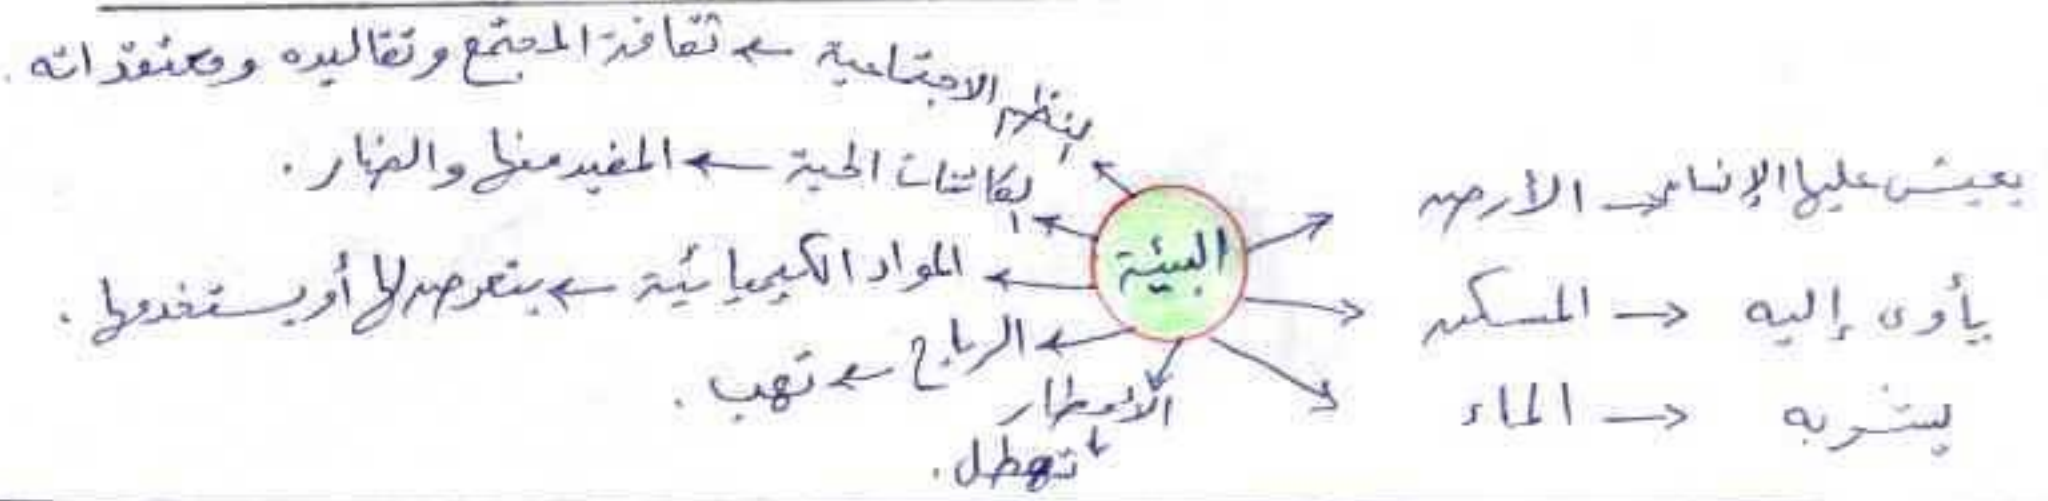 النظم الاجتماعية ← ثقافة المجتمع وتقاليده ومعتقداته.
الكائنات الحية ← المفيد منها والضار.
المواد الكيميائية ← يتعرض لها أو يستخدمها.
الرياح ← تهب.
الأمطار
↓
تهطل.
البيئة
يعيش عليها الإنسان → الأرض
يأوى إليه → المسكن
يشربه → الماء